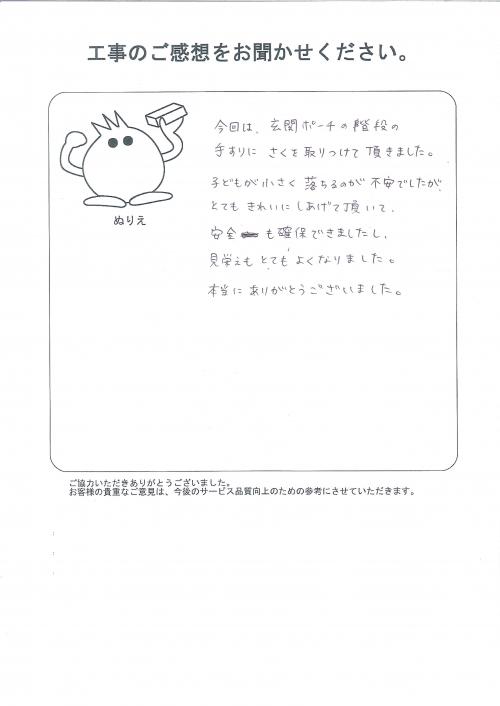 工事のご感想をお聞かせください。
ぬりえ
今回は、玄関ポーチの階段の
手すりに さくを取りつけて頂きました。
子どもが小さく 落ちるのが 不安でしたが、
とても きれいに しあげて頂いて、
安全 も確保できましたし、
見栄えも とても よくなりました。
本当に ありがとうございました。
ご協力いただきありがとうございました。
お客様の貴重なご意見は、今後のサービス品質向上のための参考にさせていただきます。